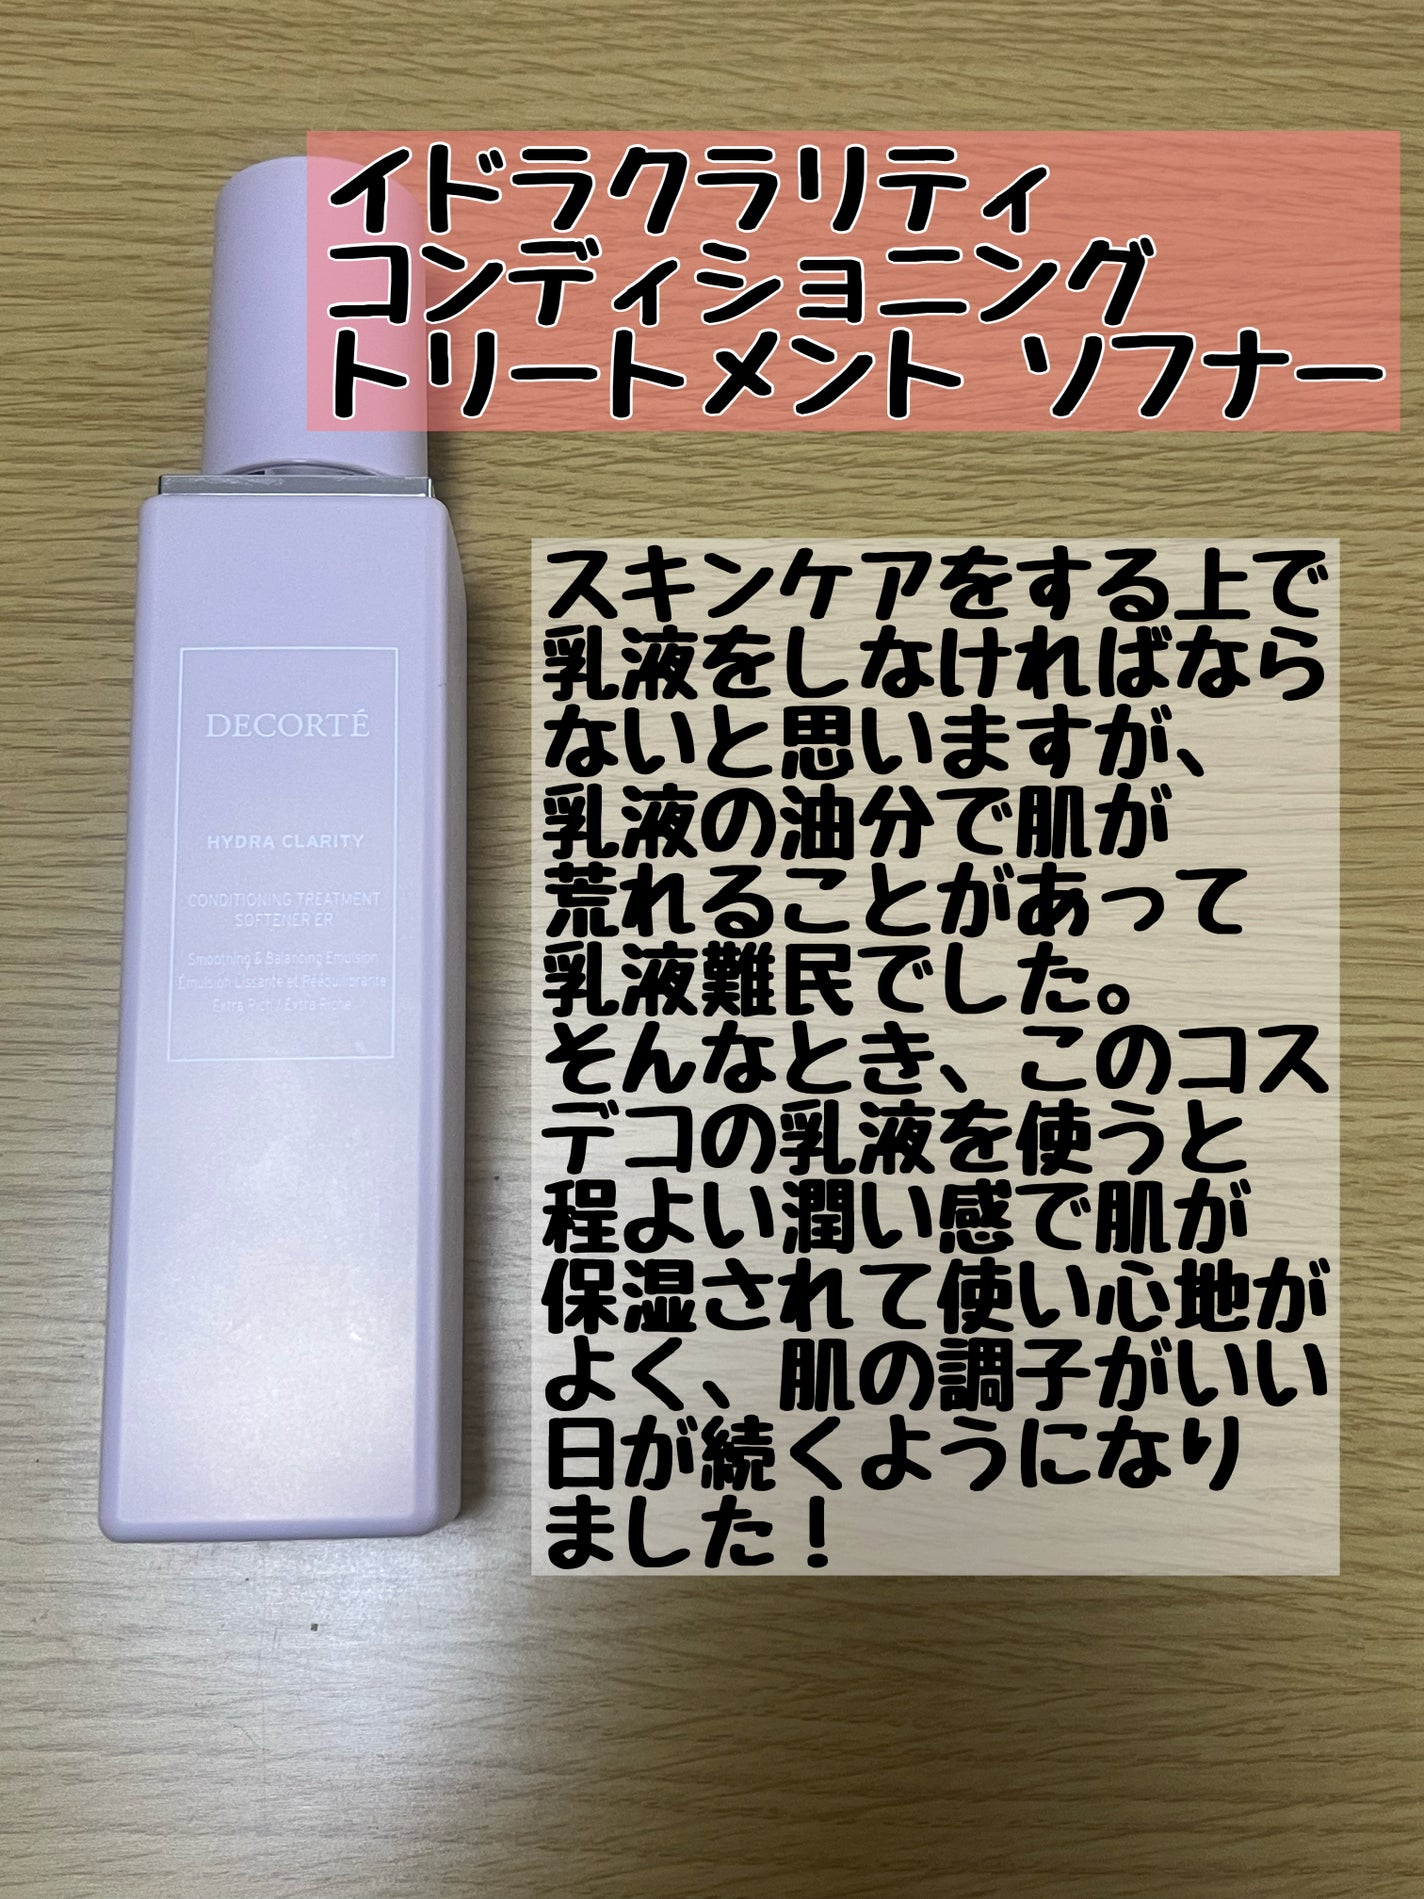 イドラクラリティ
コンディショニング
トリートメント ソフナー
スキンケアをする上で
乳液をしなければなら
ないと思いますが、
乳液の油分で肌が
荒れることがあって
乳液難民でした。
そんなとき、このコス
デコの乳液を使うと
程よい潤い感で肌が
保湿されて使い心地が
よく、肌の調子がいい
日が続くようになり
ました！
DECORTÉ
HYDRA CLARITY
CONDITIONING TREATMENT
SOFTENER ER
Smoothing & Balancing Emulsion
Émulsion Lissante et Rééquilibrante
Extra Rich / Extra Riche